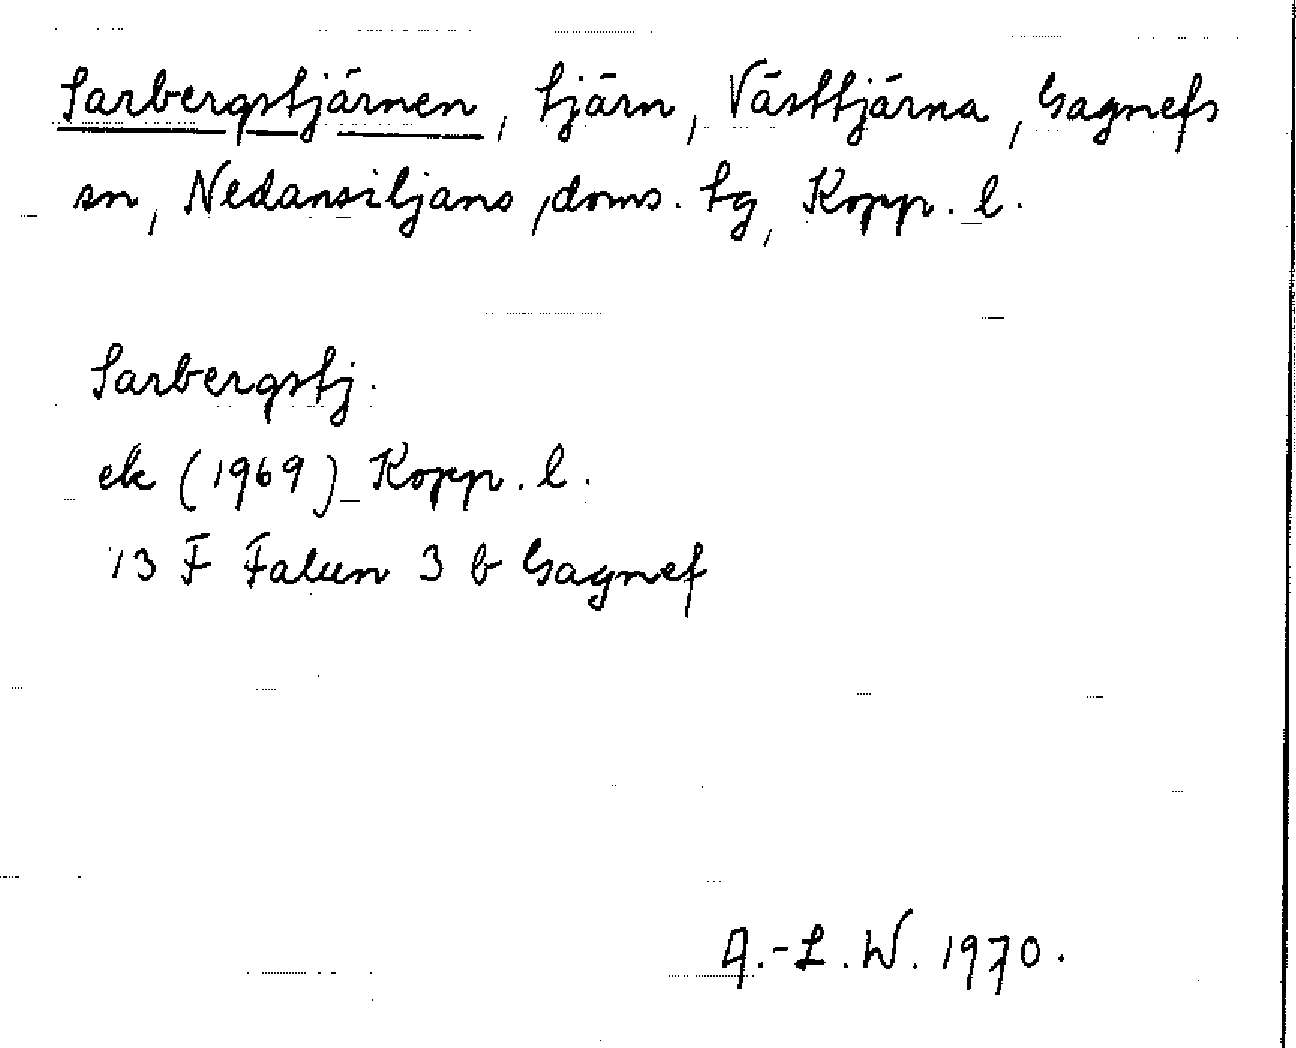 Sarbergstjärnen, tjärn, Västtjärna, Gagnefs
sn, Nedansiljans doms. tg, Kopp. l.
Sarbergstj.
ek (1969) Kopp. l.
13 F Falun 3 b Gagnef
A.-L. W. 1970.